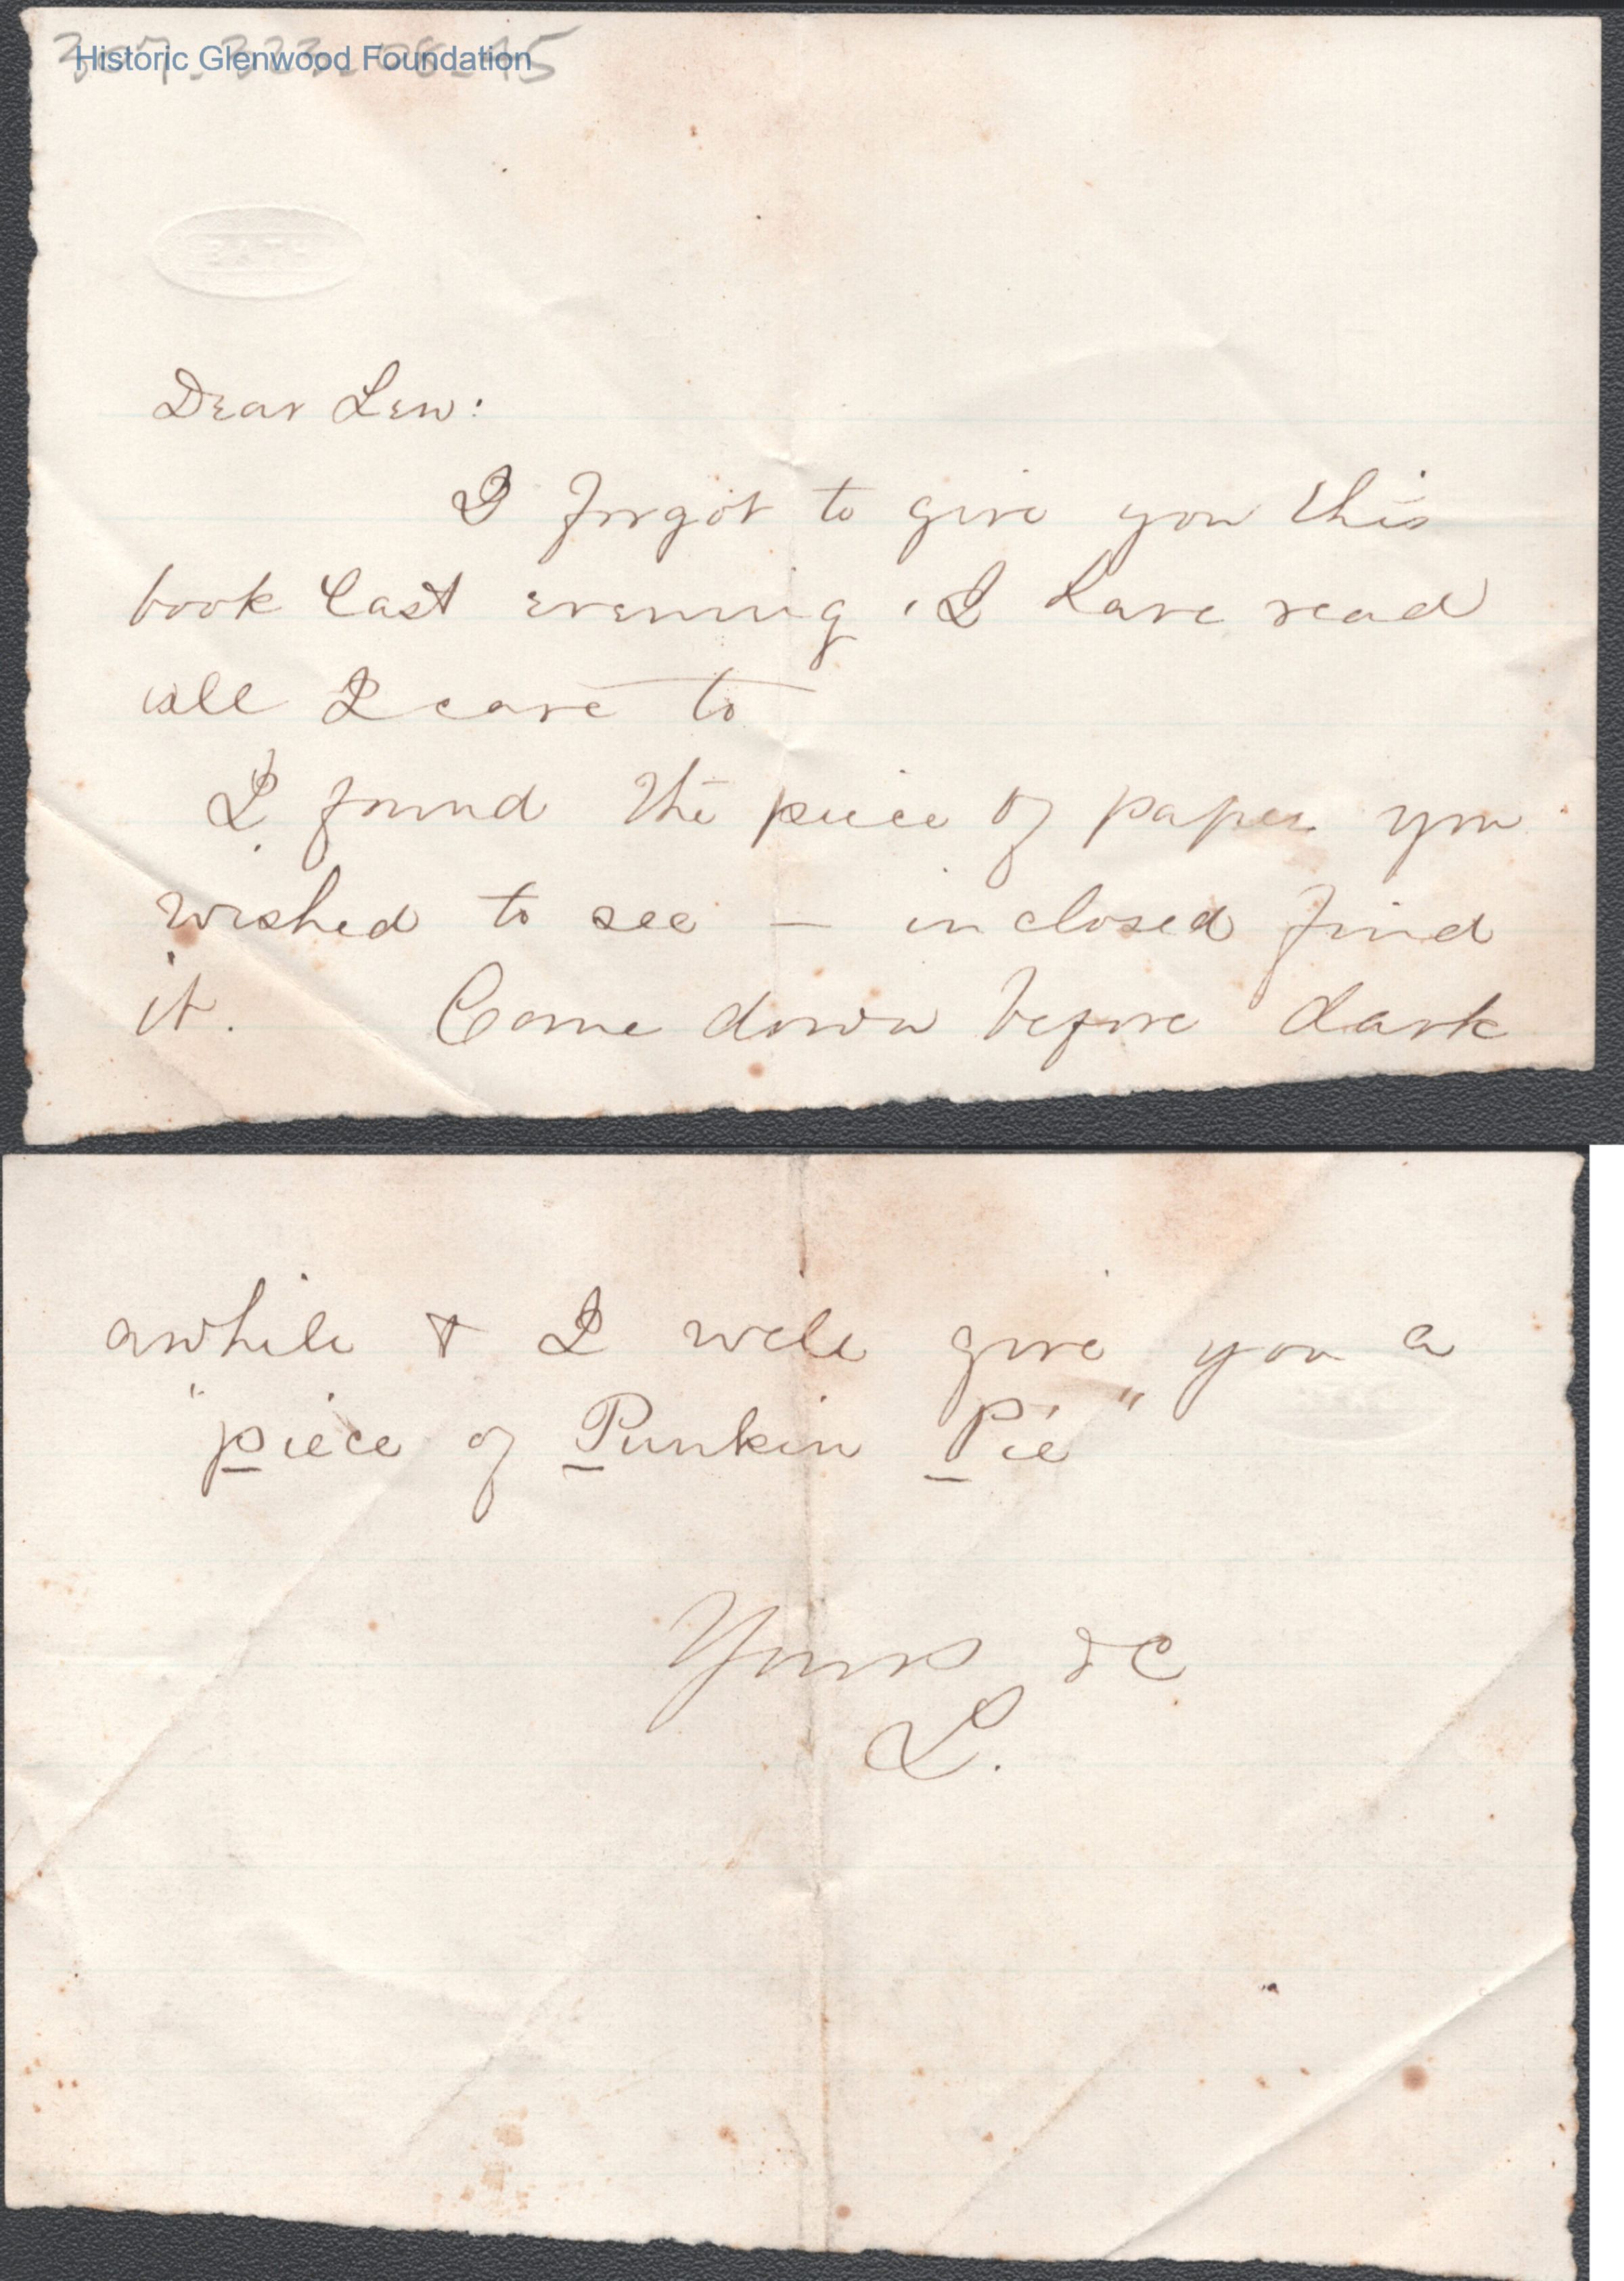 Historic Glenwood Foundation
BATH
Dear Lew:
I forgot to give you this
book last evening, I have read
all I care to
I found the piece of paper you
wished to see — inclosed find
it. Come down before dark
awhile & I will give you a
"piece of Punkin Pie"
Yours &c
L.